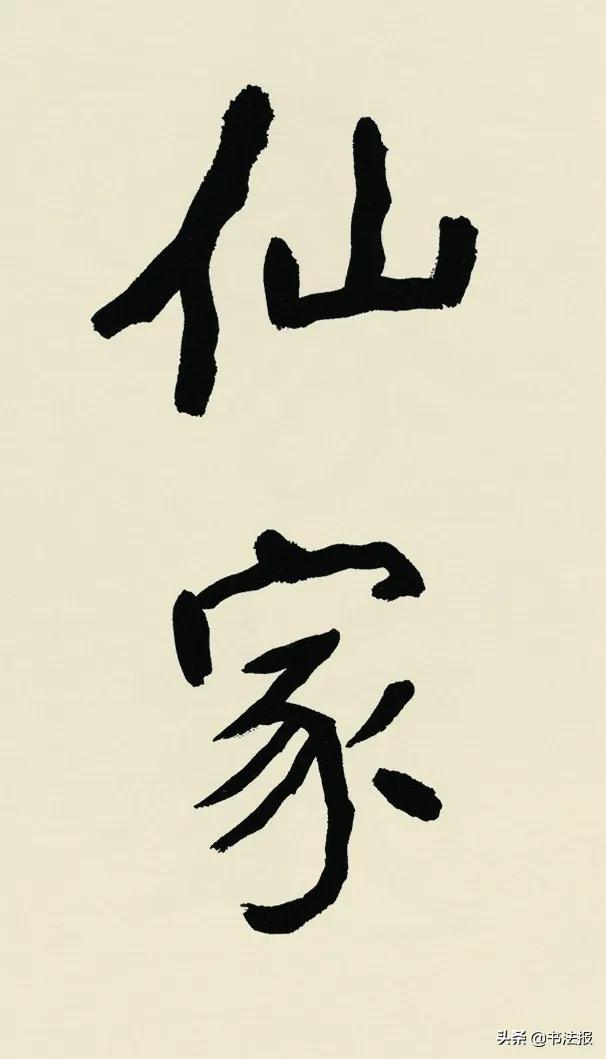 仙
家
头条 @书法报